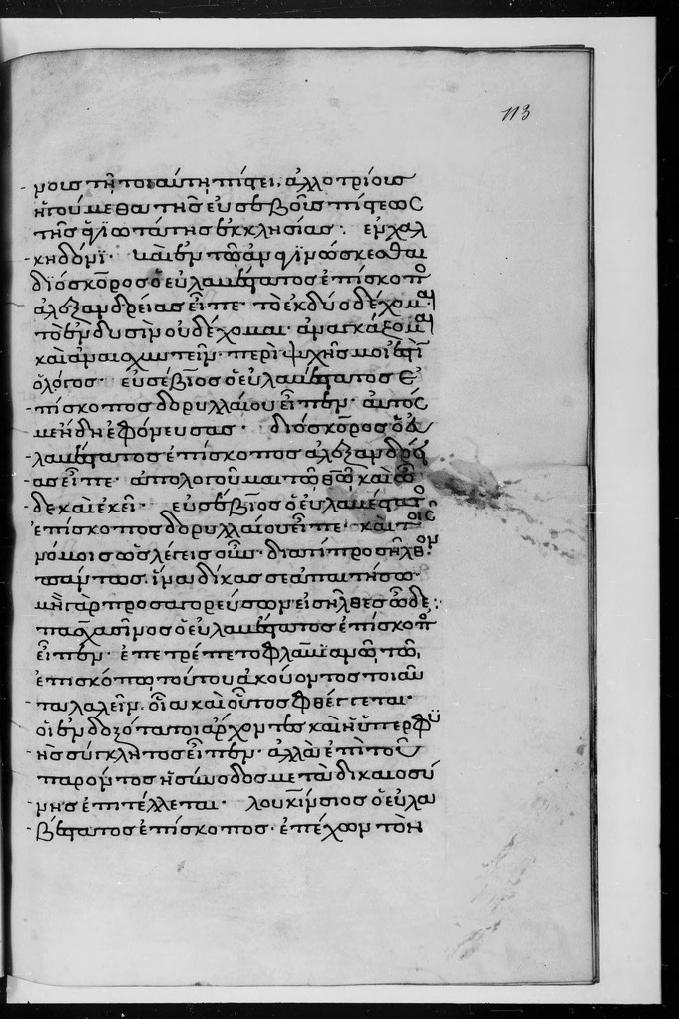 113
μοις τῇ τοιαύτῃ πίστει, ἀλλοτρίους
ἡγούμεθα τῆς εὐσεβοῦς πίστεως
τῆς ἁγιωτάτης ἐκκλησίας· ἐν χαλ
κηδόνϊ· καὶ ἐν τῶ ἀναγινώσκεσθαι
διόσκορος ὁ εὐλαβέστατος ἐπίσκοπο
ἀλεξανδρείας εἶπε· τὸ ἐκ δύο δέχομαι
τὸ ἐν δυσὶν οὐ δέχομαι· ἀναγκάζομαι
καὶ ἀναισχυντεῖν· περὶ ψυχῆς μοι ἐστὶ
ὁ λόγος· εὐσέβϊος ὁ εὐλαβέστατος ἐ
πίσκοπος δορυλλαίου εἶπεν· αὐτὸς
μὲν ἤδη ἐφόνευσας· διόσκορος ὁ εὐ
λαβέστατος ἐπίσκοπος ἀλεξανδρεί
ας εἶπε· ἀπολογοῦμαι τῶ θῶ καὶ ὧ
δε καὶ ἐκεῖ· εὐσέβϊος ὁ εὐλαβέστατο
ἐπίσκοπος δορυλλαίου εἶπε· καὶ τοῖς
νόμοις ὡς λέγεις οὖν· διατί προσῆλθον
πάντως, ἵνα δίκας σε ἀπαιτήσω·
μὴ γὰρ προσαγορεύσων εἰσῆλθες ὧδε·
πασχασῖνος ὁ εὐλαβέστατος ἐπίσκοπο
εἶπεν· ἐπετρέπετο φλαϊανῶ τῶ,
ἐπισκόπω τούτου ἀκούοντος τοιαῦ
τα λαλεῖν, οἷα καὶ οὗτος φθέγγεται·
οἱ ἐνδοξότατοι ἄρχοντες καὶ ἡ ὑπερφυ
ὴς σύγκλητος εἶπεν· ἀλλὰ ἐπὶ τοῦ
παρόντος ἡ σύνοδος μετὰ δικαιοσύ
νης ἐπιτέλλεται· λουκίνσιος ὁ εὐλα
βέστατος ἐπίσκοπος· ἐπέχων τὸν